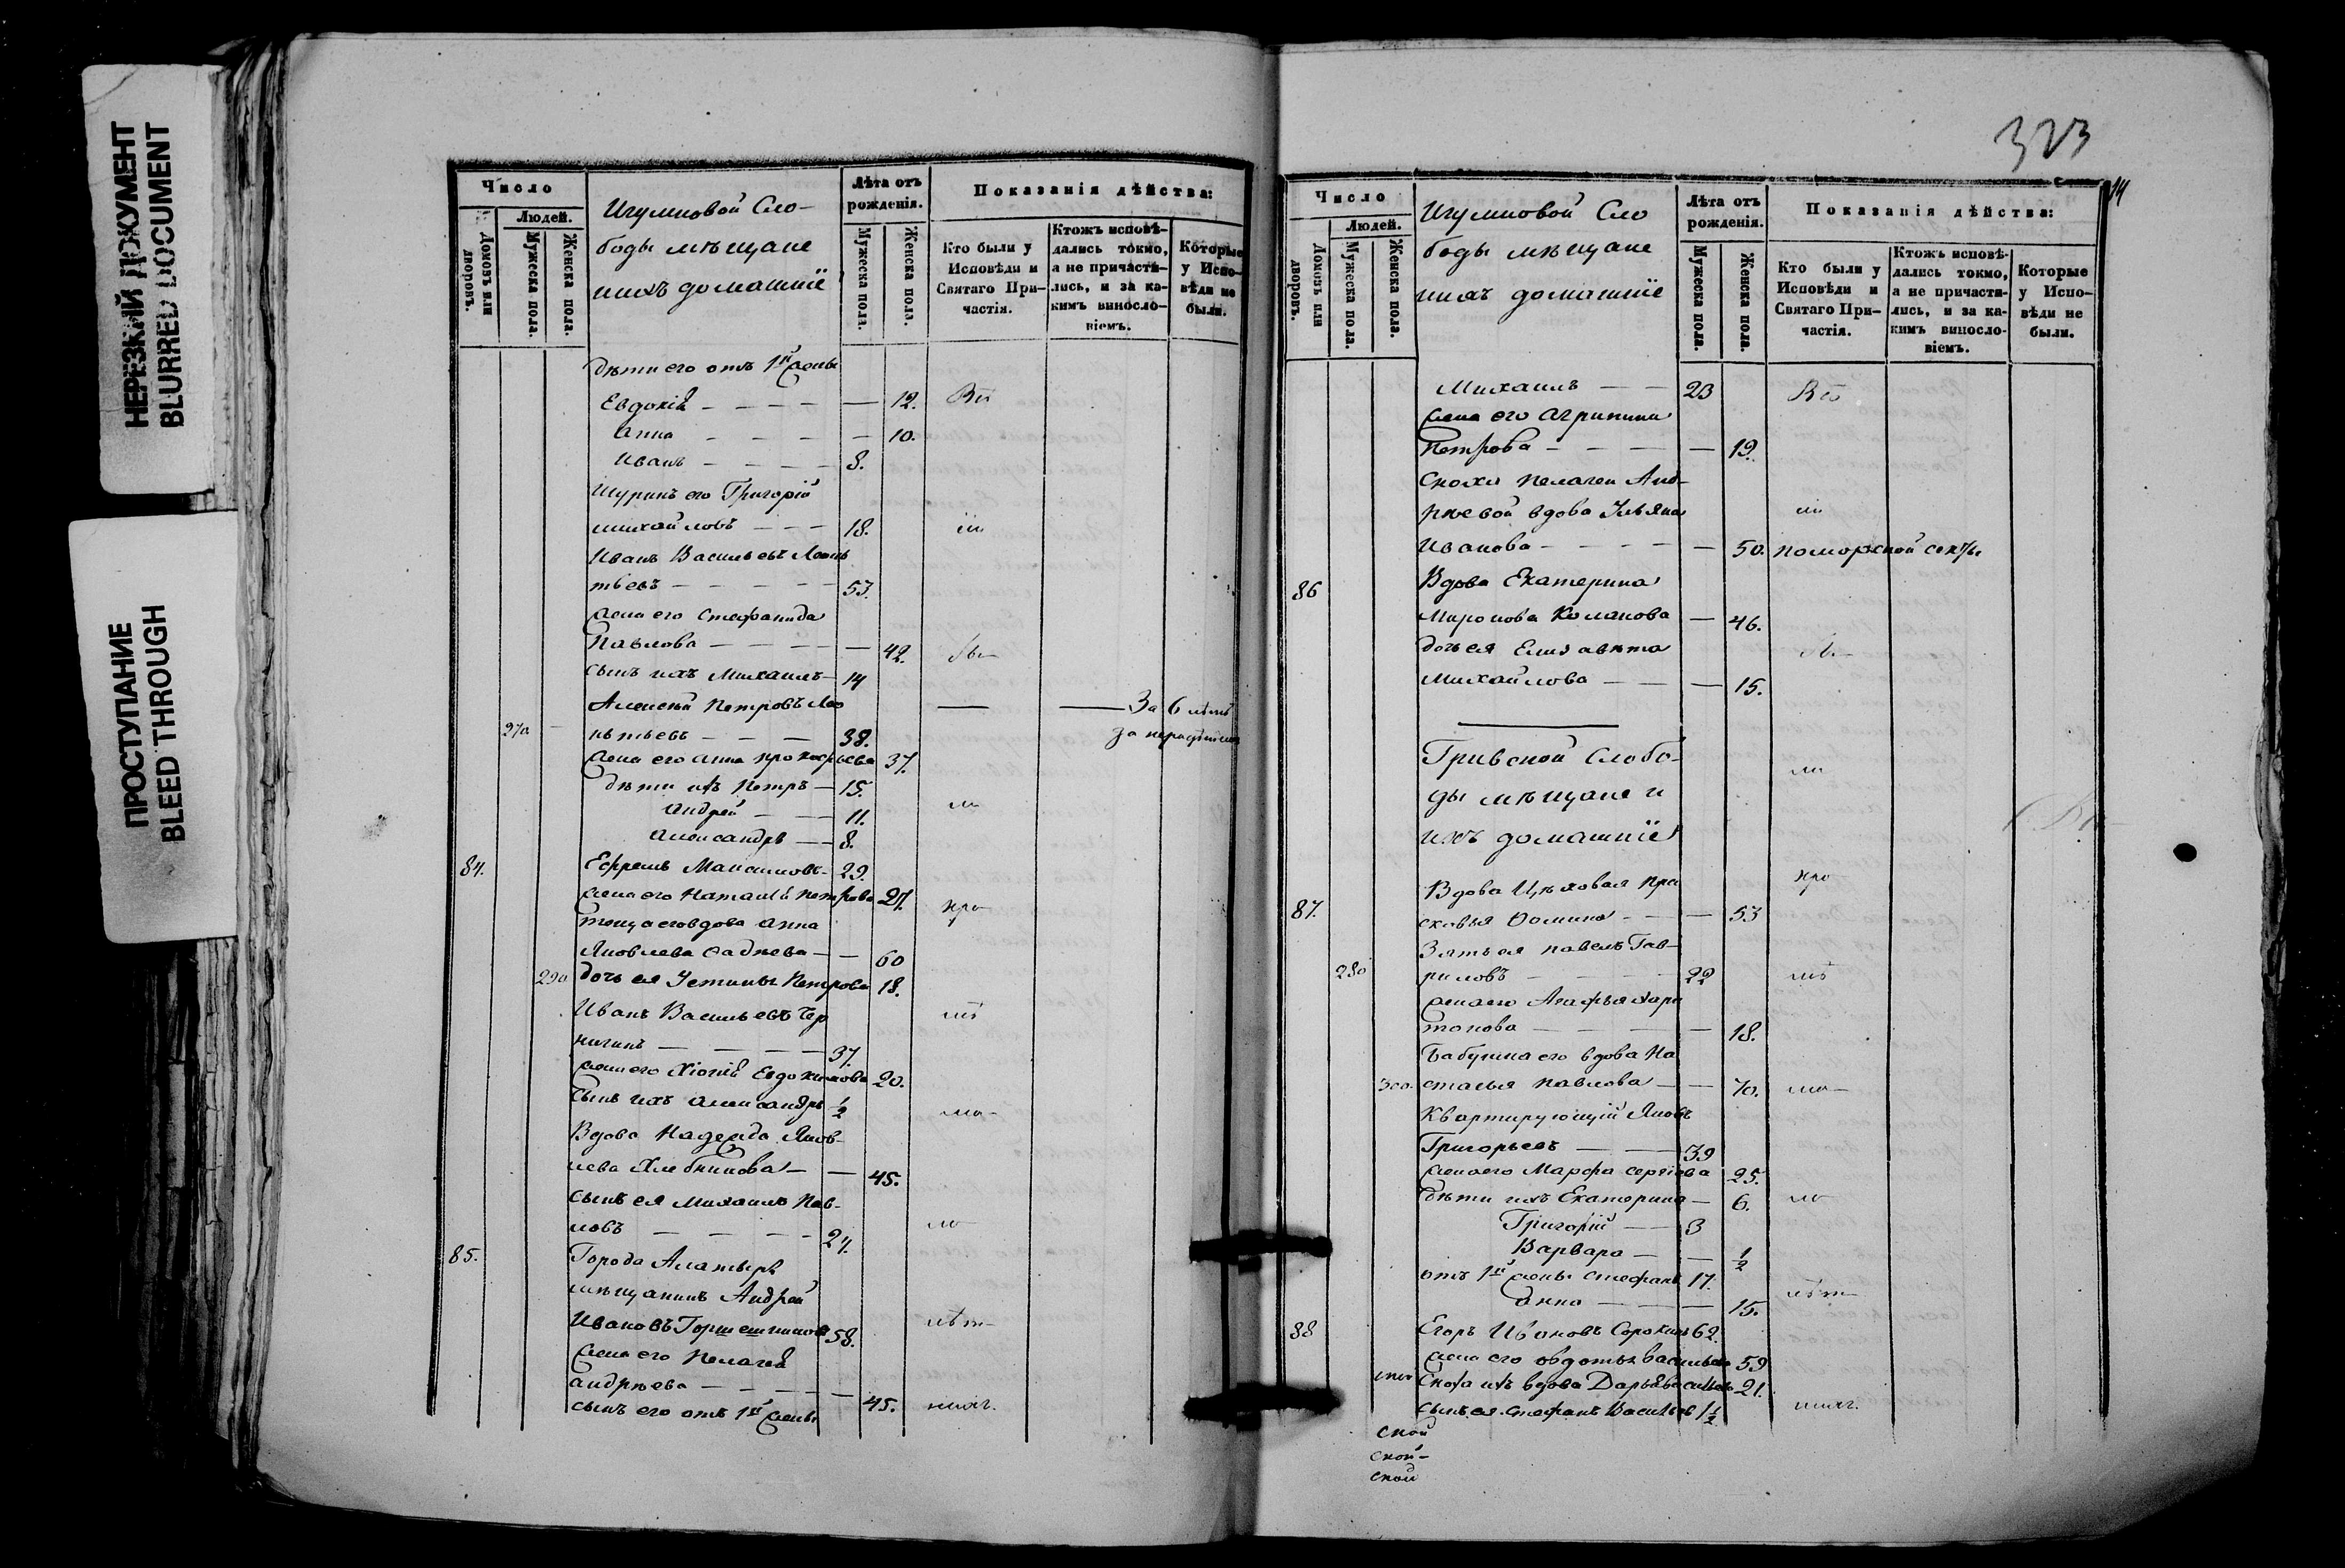 НЕРЕЗКИЙ ДОКУМЕНТ
BLURRED DOCUMENT
ПРОСТУПАНИЕ
BLEED THROUGH
Число
Людей.
Домовъ или дворовъ.
Мужеска пола.
Женска пола.
Игумновой Сло-
боды мѣщане
и ихъ домашніе
Лѣта отъ рожденія.
Мужеска пола.
Женска пола.
Показанія дѣйства:
Кто были у Исповѣди и Святаго При-частія.
Ктожъ исповѣ-дались токмо, а не причасти-лись, и за ка-кимъ винносло-віемъ.
Которые у Испо-вѣди не были.
дѣти его отъ 1й жены
Евдокія — 12. Всѣ
Анна — 10.
Иванъ 8.
Шуринъ его Григорій
Михайловъ 18.
Иванъ Васильевъ
тьевъ 53.
жена его Стефанида
Павлова — 42.
сынъ ихъ Михаилъ 14
Алексѣй Петровъ За 6 лѣтъ
270 38. за нерадѣніемъ
жена его Анна Прокофьева 37.
дѣти ихъ Петръ 15.
Андрей 11.
Александръ 8.
84. Ефремъ Максимовъ 29.
жена его Наталія Петрова 27. про
теща его вдова Анна
Яковлева — 60
290 дочь ея Устинья Петрова 18.
Иванъ Васильевъ
37.
жена его Хіонія Евдокимова 20.
сынъ ихъ Александръ 1/2
Вдова Надежда Яков-
лева Хлебникова — 45.
сынъ ея Михаилъ Пав-
ловъ 27.
85. Города Алатыря
мѣщанинъ Андрей
Ивановъ Горшешниковъ 58. лѣт
жена его Пелагея
Андрѣева — 45.
сынъ его отъ 1й жены
323
14
Число
Людей.
Домовъ или дворовъ.
Мужеска пола.
Женска пола.
Игумновой Сло
боды мѣщане
и ихъ домашніе
Лѣта отъ рожденія.
Мужеска пола.
Женска пола.
Показанія дѣйства:
Кто были у Исповѣди и Святаго При-частія.
Ктожъ исповѣ-дались токмо, а не причасти-лись, и за ка-кимъ винносло-віемъ.
Которые у Испо-вѣди не были.
Михаилъ 23 Всѣ
жена его Агрипина
Петрова — 19.
Сноха Пелагеи Анд-
рѣевой вдова Ульяна
Иванова — 50. поморской секты
86 Вдова Екатерина
Миронова Колапова — 46.
дочь ея Елизавѣта
Михайлова — 15.
Гривской Слобо-
ды мѣщане и
ихъ домашніе
Вдова Цѣховая Пра про
87. сковья Фомина — 53
Зять ея Павелъ Гав-
280 риловъ 22
жена его Агафья Хари
тонова — 18.
Бабушка его вдова На
300. стасья Павлова — 70.
Квартирующій Яковъ
Григорьевъ 39
жена его Марфа Сергіева 25.
дѣти ихъ Екатерина — 6.
Григорій 3
Варвара — 1/2
отъ 1й жены Стефанъ 17. лѣт
Анна — 15.
88 Егоръ Ивановъ Сорокинъ 62.
жена его Овдотья Васильева 59
Сноха ихъ вдова Дарья Васильева 21.
сынъ ея Стефанъ Васильевъ 1 1/2
ской
ской
ской